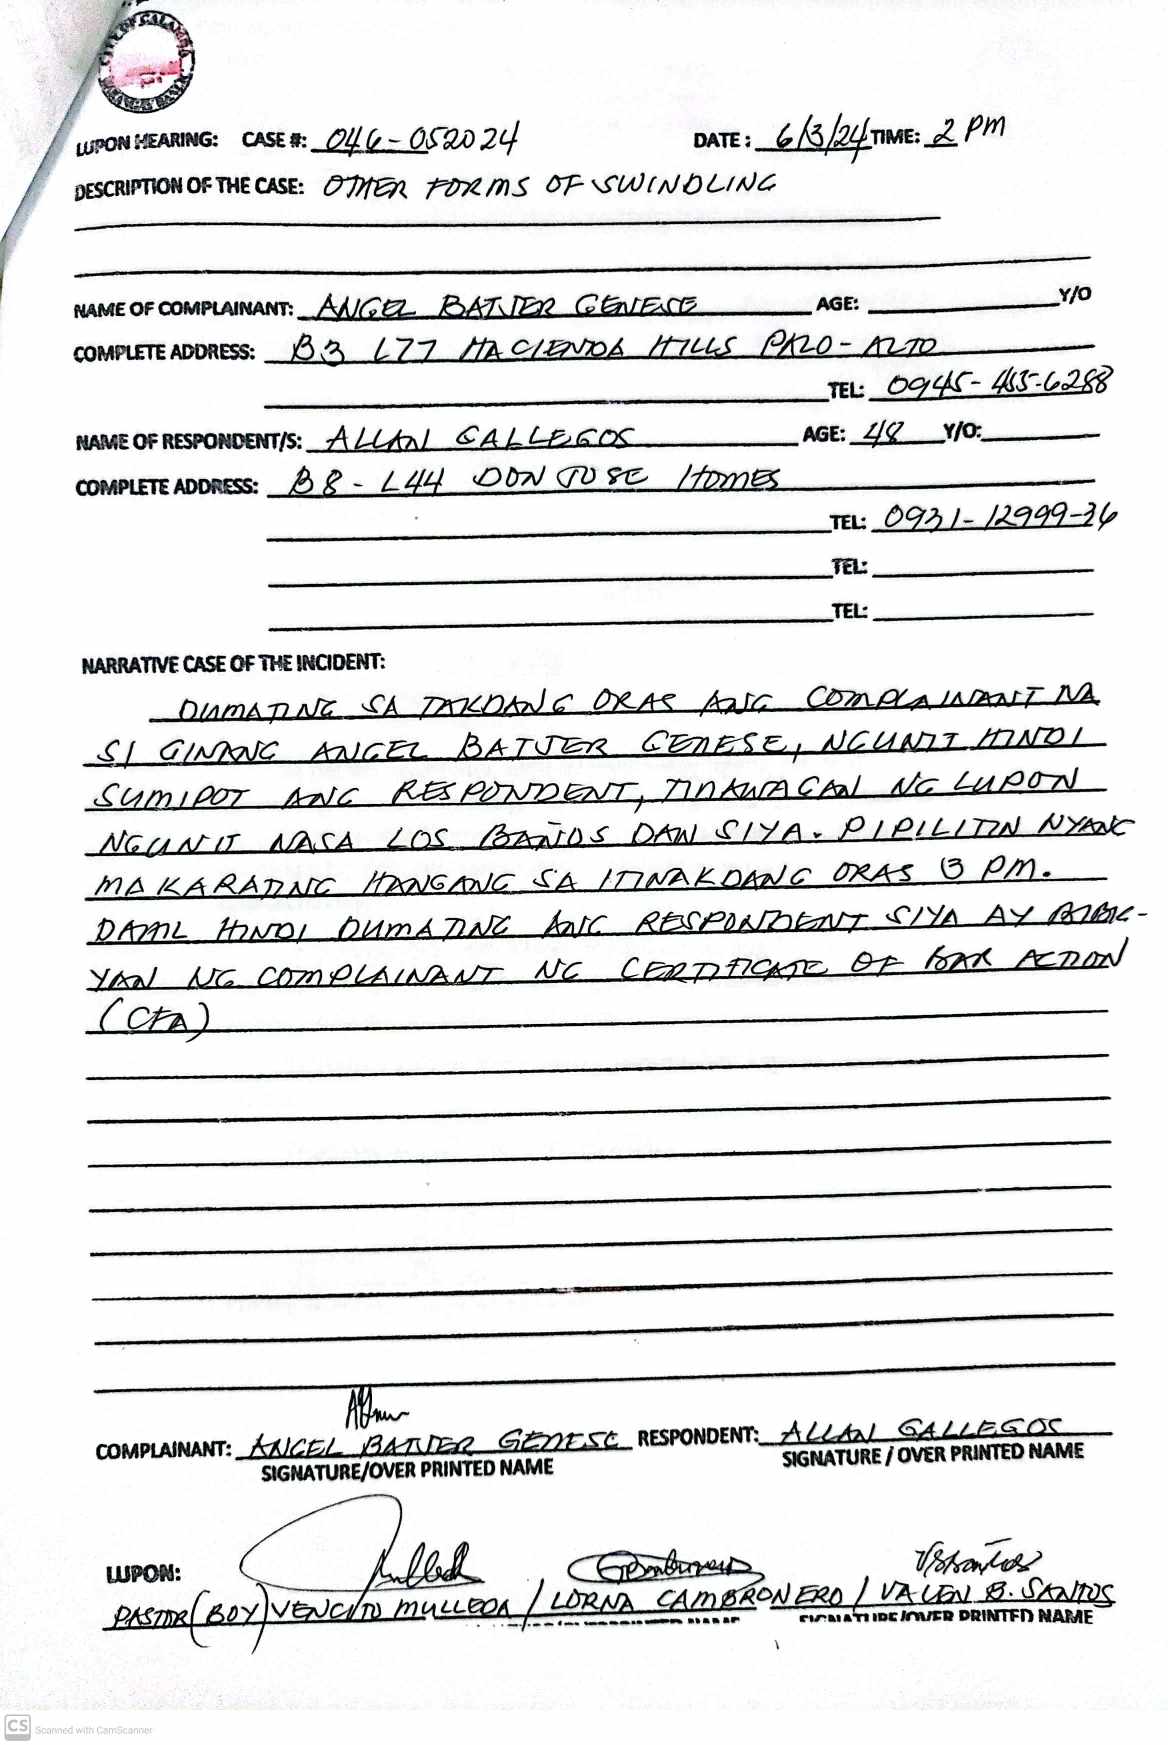 CITY OF CALAMBA
LUPON HEARING: CASE #: 046-052024 DATE: 6/3/24 TIME: 2 PM
DESCRIPTION OF THE CASE: OTHER FORMS OF SWINDLING
NAME OF COMPLAINANT: ANGEL BATJER GENESE AGE: Y/O
COMPLETE ADDRESS: B3 L77 HACIENDA HILLS PALO-ALTO
TEL: 0945-455-6288
NAME OF RESPONDENT/S: ALLAN GALLEGOS AGE: 48 Y/O:
COMPLETE ADDRESS: B8-L44 DON JOSE HOMES
TEL: 0931-12999-36
TEL:
TEL:
NARRATIVE CASE OF THE INCIDENT:
DUMATING SA TAKDANG ORAS ANG COMPLAINANT NA
SI GINANG ANGEL BATJER GENESE, NGUNIT HINDI
SUMIPOT ANG RESPONDENT, TINAWAGAN NG LUPON
NGUNIT NASA LOS BAÑOS DAW SIYA. PIPILITIN NYANG
MAKARATING HANGANG SA ITINAKDANG ORAS 3 PM.
DAHIL HINDI DUMATING ANG RESPONDENT SIYA AY BIBIG-
YAN NG COMPLAINANT NG CERTIFICATE OF BAR ACTION
(CFA)
COMPLAINANT: ANGEL BATJER GENESE RESPONDENT: ALLAN GALLEGOS
SIGNATURE/OVER PRINTED NAME SIGNATURE / OVER PRINTED NAME
LUPON:
PASTOR (BOY) VENCITO MULLEDA / LORNA CAMBRONERO / VALEN B. SANTOS
NAME SIGNATURE/OVER PRINTED NAME
CS Scanned with CamScanner